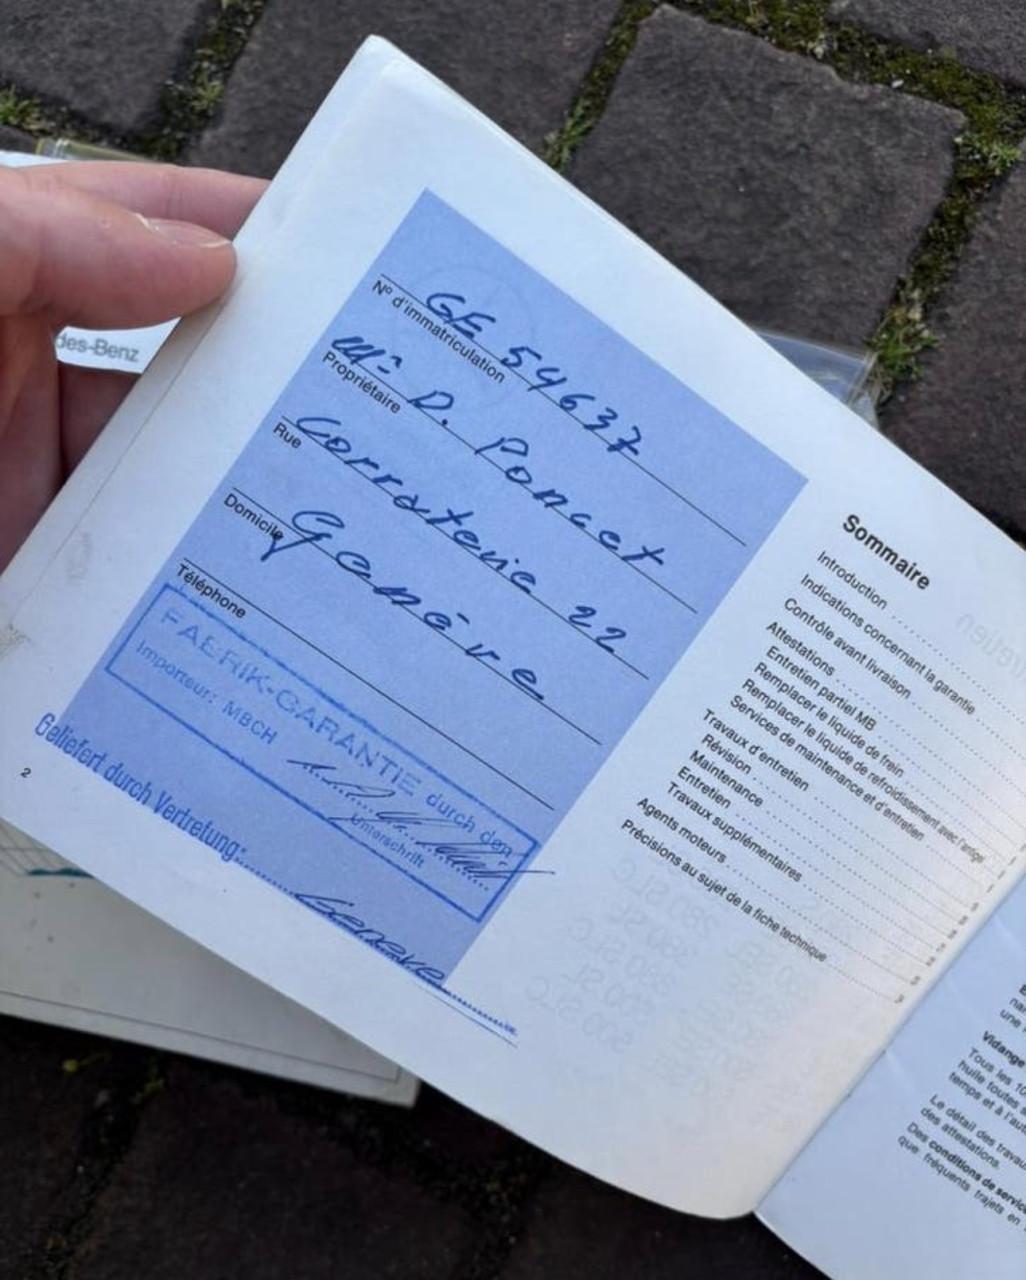 des-Benz
GE 54637
N° d'immatriculation
Mr D. Poncet
Propriétaire
Corraterie 22
Rue
Genève
Domicile
Téléphone
FABRIK-GARANTIE durch den
Importeur: MBCH
Unterschrift
Geliefert durch Vertretung:
Genève
2
Sommaire
Introduction
Indications concernant la garantie
Contrôle avant livraison
Attestations
Entretien partiel MB
Remplacer le liquide de frein
Remplacer le liquide de refroidissement avec l'antigel
Services de maintenance et d'entretien
Travaux d'entretien
Révision
Maintenance
Entretien
Travaux supplémentaires
Agents moteurs
Précisions au sujet de la fiche technique
une
Vidange
Tous les 10
huile toutes
temps et à l'au
Le détail des travau
des attestations.
Des conditions de service
que fréquents trajets en